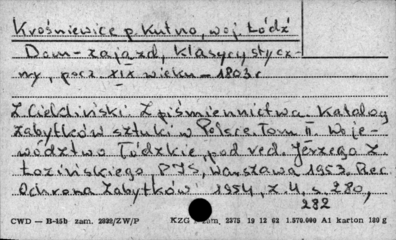 Krośniewice p. Kutno, woj. Łódź
Dom-zajazd, klasycystycz-
ny, pocz. XIX wieku – 1803 r
Z. Cieldiński Z piśmiennictwa. Katalog
zabytków sztuki w Polsce. Tom II. Woje-
wództwo Łódzkie, pod red. Jerzego Z.
Łozińskiego, PIS, Warszawa 1953. Rec.
Ochrona Zabytków 1954, z. 4, s. 280,
282
CWD — B-45b zam. 2892/ZW/P KZG zam. 2375 19 12 62 1.570.000 A1 karton 180 g